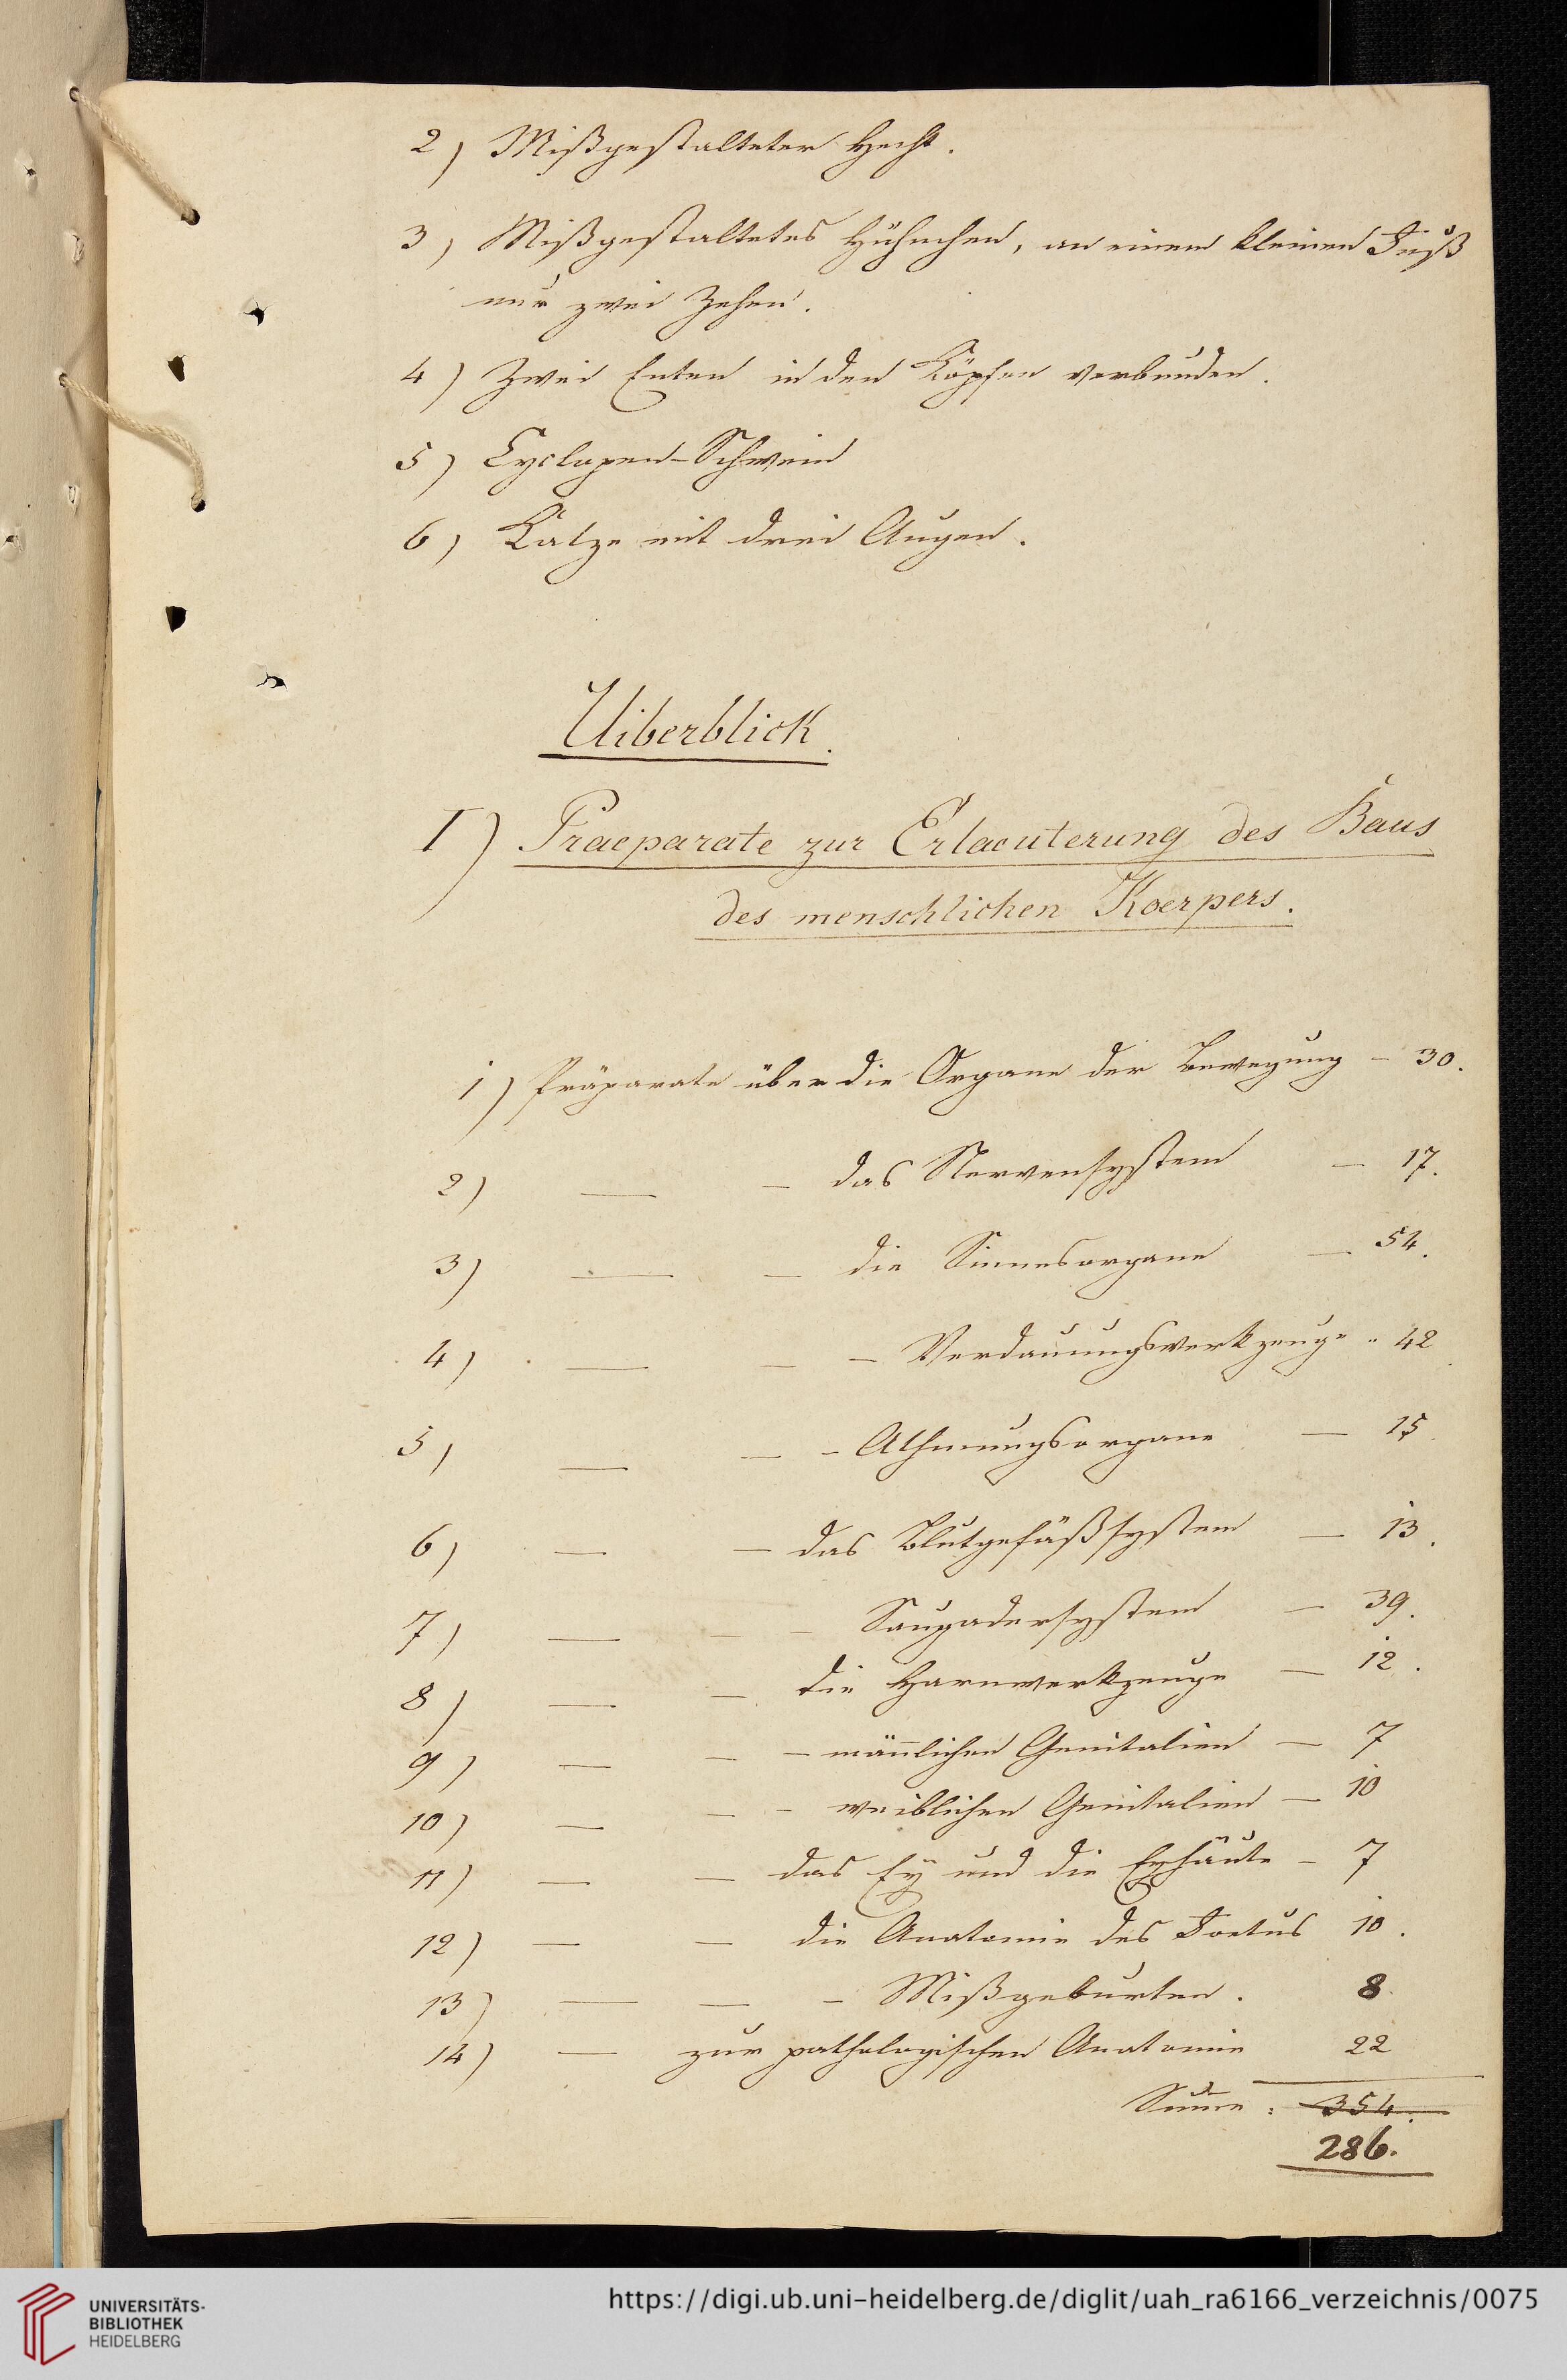 2) Mißgestalteter Hecht.
3) Mißgestaltetes Hühnchen, an einem kleinen Fuß
nur zwei Zehen.
4) Zwei Enten in den Köpfen verbunden.
5) Cyclopen-Schwein
6) Katze mit drei Augen.
Uiberblick.
I) Praeparate zur Erlaeuterung des Baus
des menschlichen Koerpers.
1) Präparate über die Organe der Bewegung – 30.
2) — — das Nervensystem — 17.
3) — — die Sinnesorgane — 54.
4) — — — Verdauungswerkzeuge " 42
5) — — – Athmungsorgane — 15.
6) — — das Blutgefäßsystem — 13.
7) — — – Saugadersystem — 39.
8) — — die Harnwerkzeuge — 12.
9) — — – männlichen Genitalien — 7
10) — — – weiblichen Genitalien — 10
11) — — das Ey und die Eyhäute – 7
12) — — die Anatomie des Foetus 10.
13) — — – Mißgeburten. 8.
14) — zur pathologischen Anatomie 22
Summe : 354.
286.
UNIVERSITÄTS-
BIBLIOTHEK
HEIDELBERG
https://digi.ub.uni-heidelberg.de/diglit/uah_ra6166_verzeichnis/0075